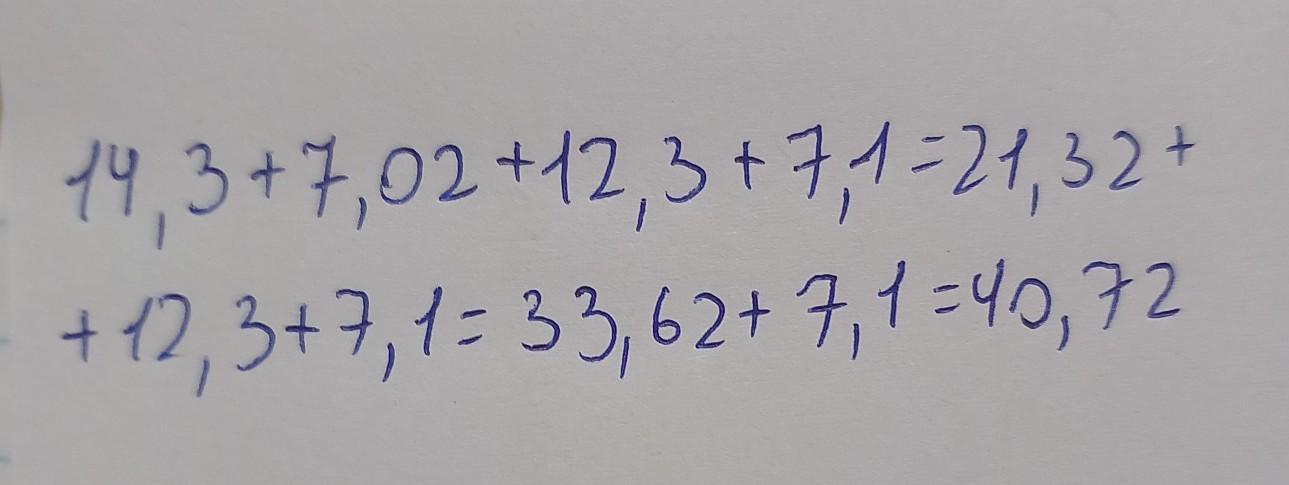 14,3+7,02+12,3+7,1=21,32+
+12,3+7,1=33,62+7,1=40,72